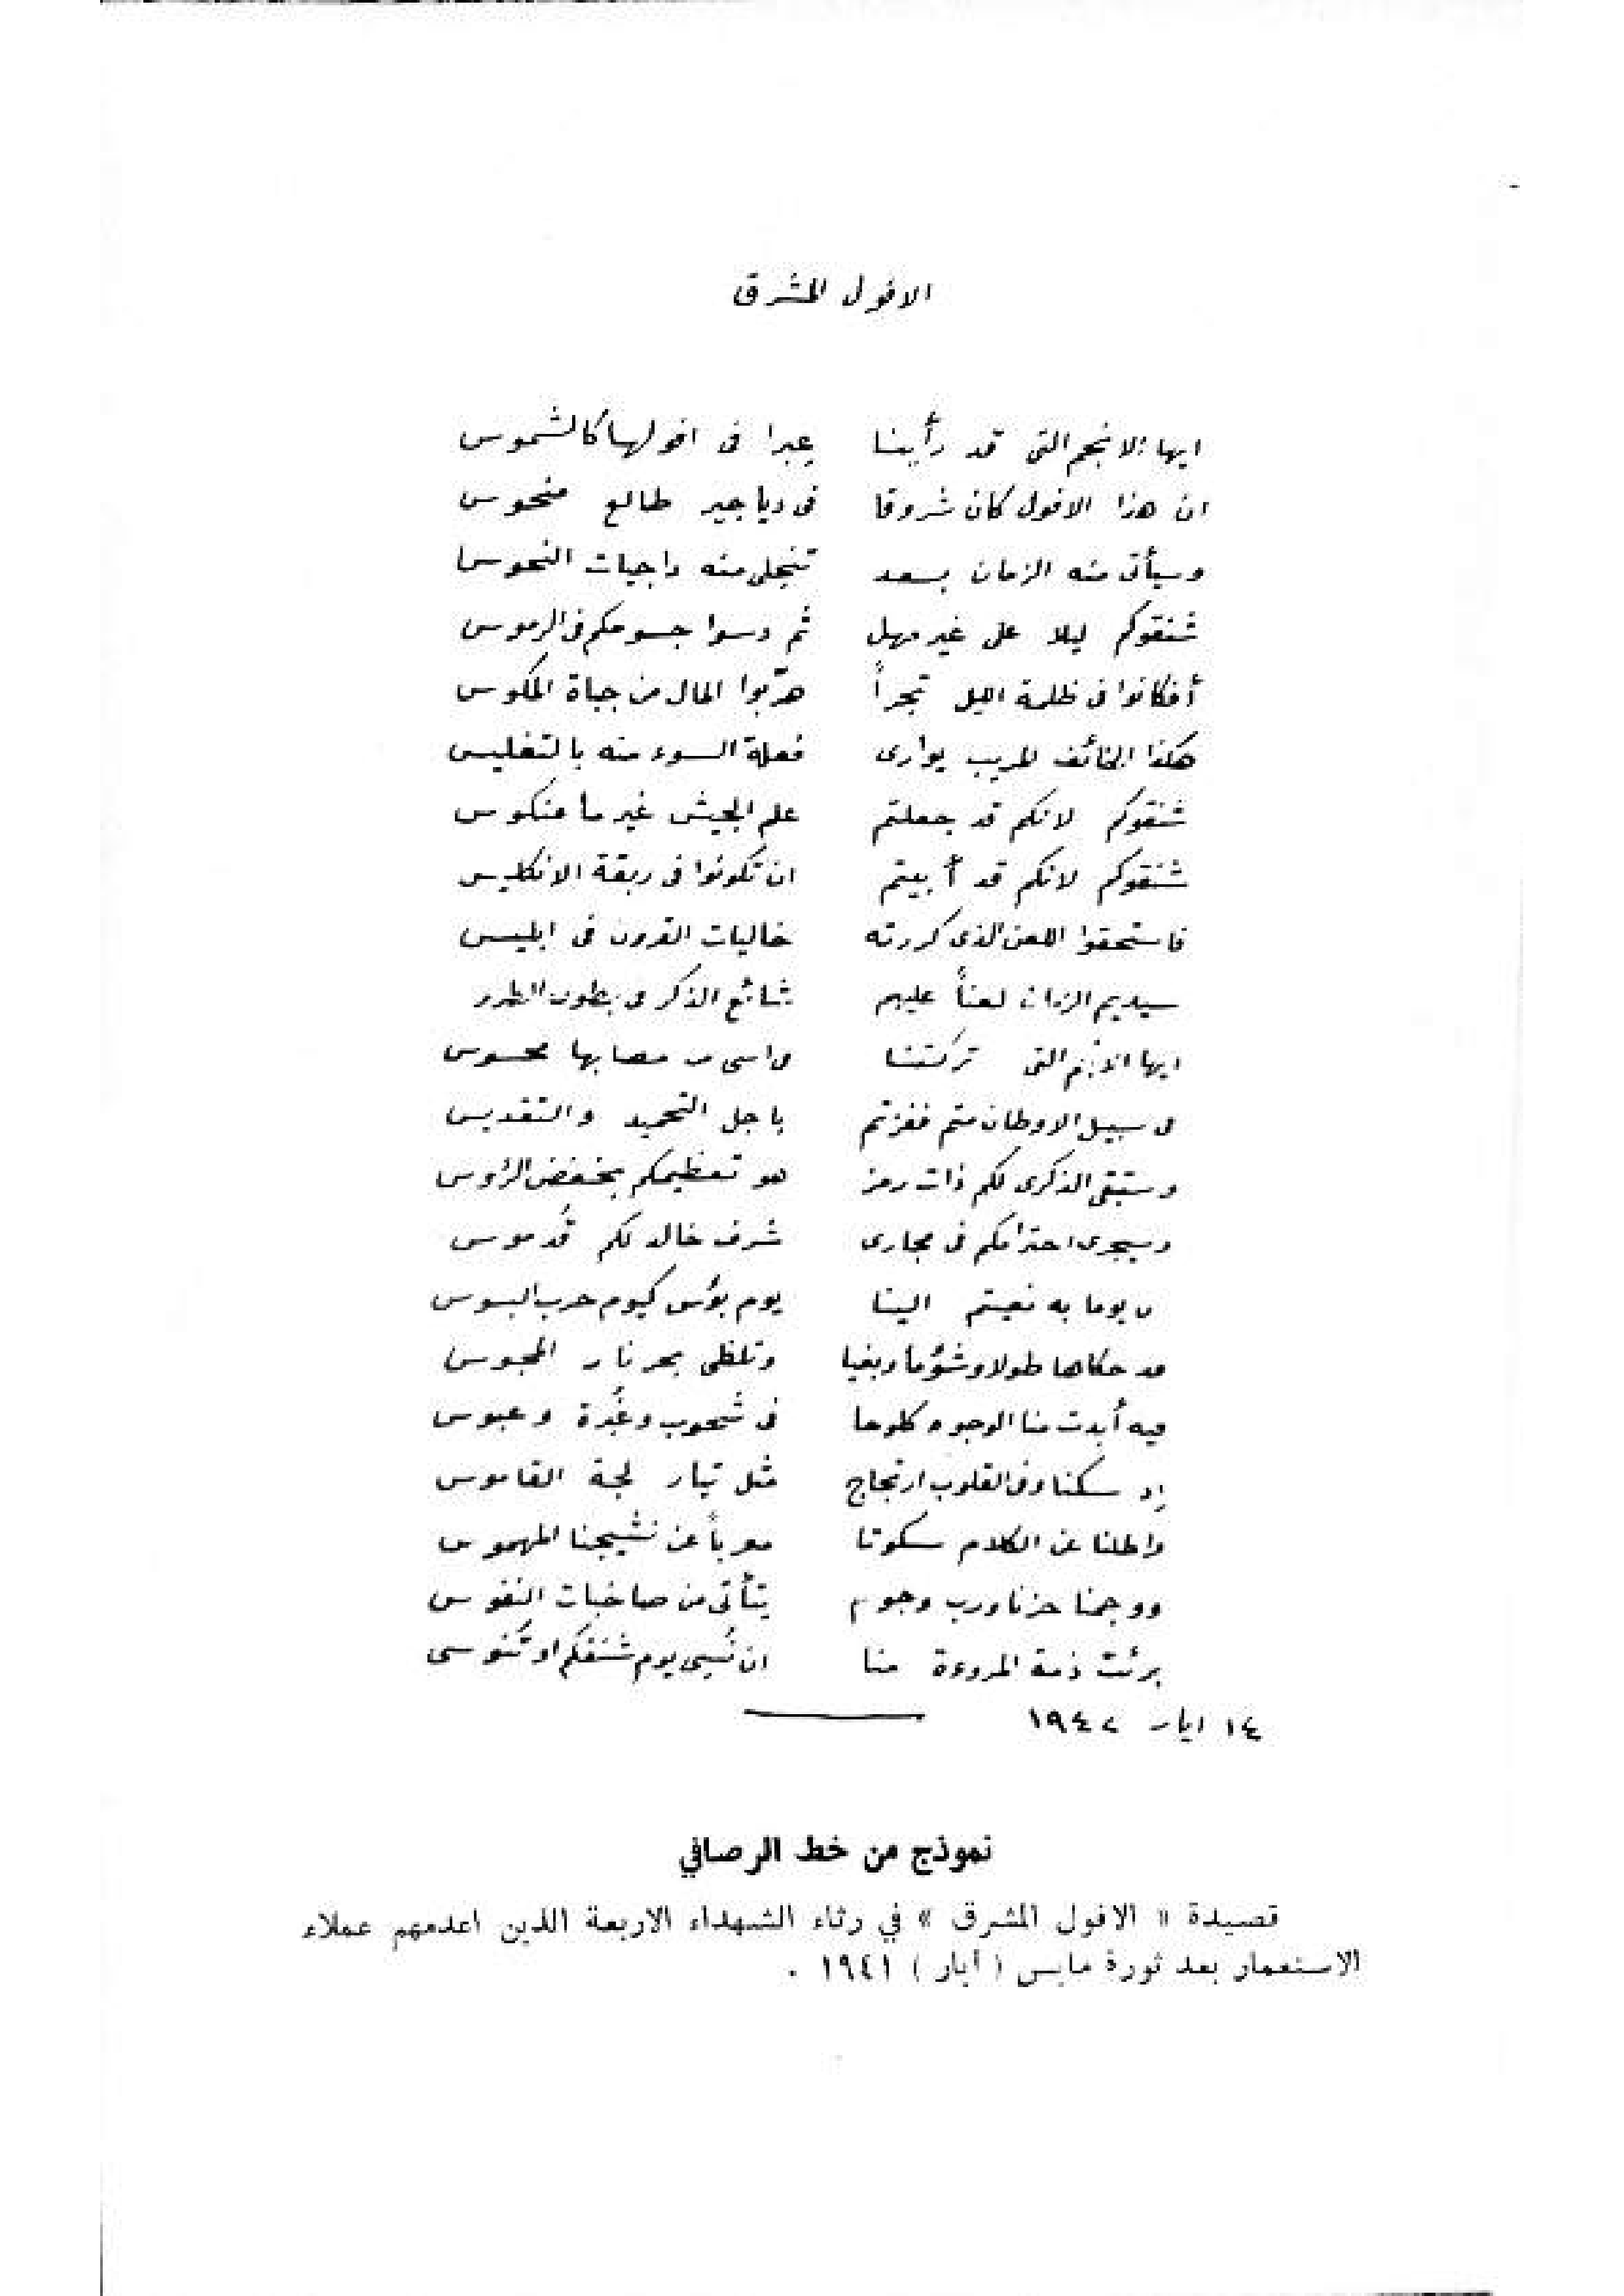 الافول المشرق
ايها الانجم التى قد رأينا عبرا فى افولها كالشموس
ان هذا الافول كان شروقا فى دياجير طالع منحوس
وسيأتى منه الزمان بسعد تنجلى منه داجيات النحوس
شنقوكم ليلا على غير مهل ثم دسوا جسومكم فى الرموس
أفكانوا فى ظلمة الليل تجراً هرّبوا المال من جباة المكوس
هكذا الخائف المريب يوارى فعلة السوء منه بالتغليس
شنقوكم لانكم قد جعلتم علم الجيش غير ما منكوس
شنقوكم لانكم قد أبيتم ان تكونوا فى ربقة الانكليس
فاستحقوا اللعن الذى كررته خاليات القرون فى ابليس
سيديم الزمان لعناً عليهم شائع الذكر فى بطون
ايها الانجم التى تركتنا فى اسى من مصابها محسوس
فى سبيل الاوطان متم ففزتم باجل التحميد والتقديس
وستبقى الذكرى لكم ذات رمز هو تعظيمكم بخفض الرؤوس
وسيجرى احترامكم فى مجارى شرف خالد لكم قُدموس
ان يوما به نعيتم الينا يوم بؤس كيوم حرب البسوس
قد حكاها طولا وشؤما وبغيا وتلظى بحر نار المجوس
فيه أبدت منا الوجوه كلوحا فى شحوب وغُبرة وعبوس
إذ سكنا وفى القلوب ارتجاج مثل تيار لجة القاموس
واطلنا عن الكلام سكوتا معرباً عن نشيجنا المهموس
ووجمنا حزنا ورب وجوم يتأتى من صاخبات النفوس
برئت ذمة المروءة منا ان نُسِى يوم شنقكم او تُنوسى
١٤ ايار ١٩٤٢
نموذج من خط الرصافي
قصيدة « الافول المشرق » في رثاء الشهداء الاربعة الذين اعدمهم عملاء
الاستعمار بعد ثورة مايس ( أيار ) ١٩٤١ .